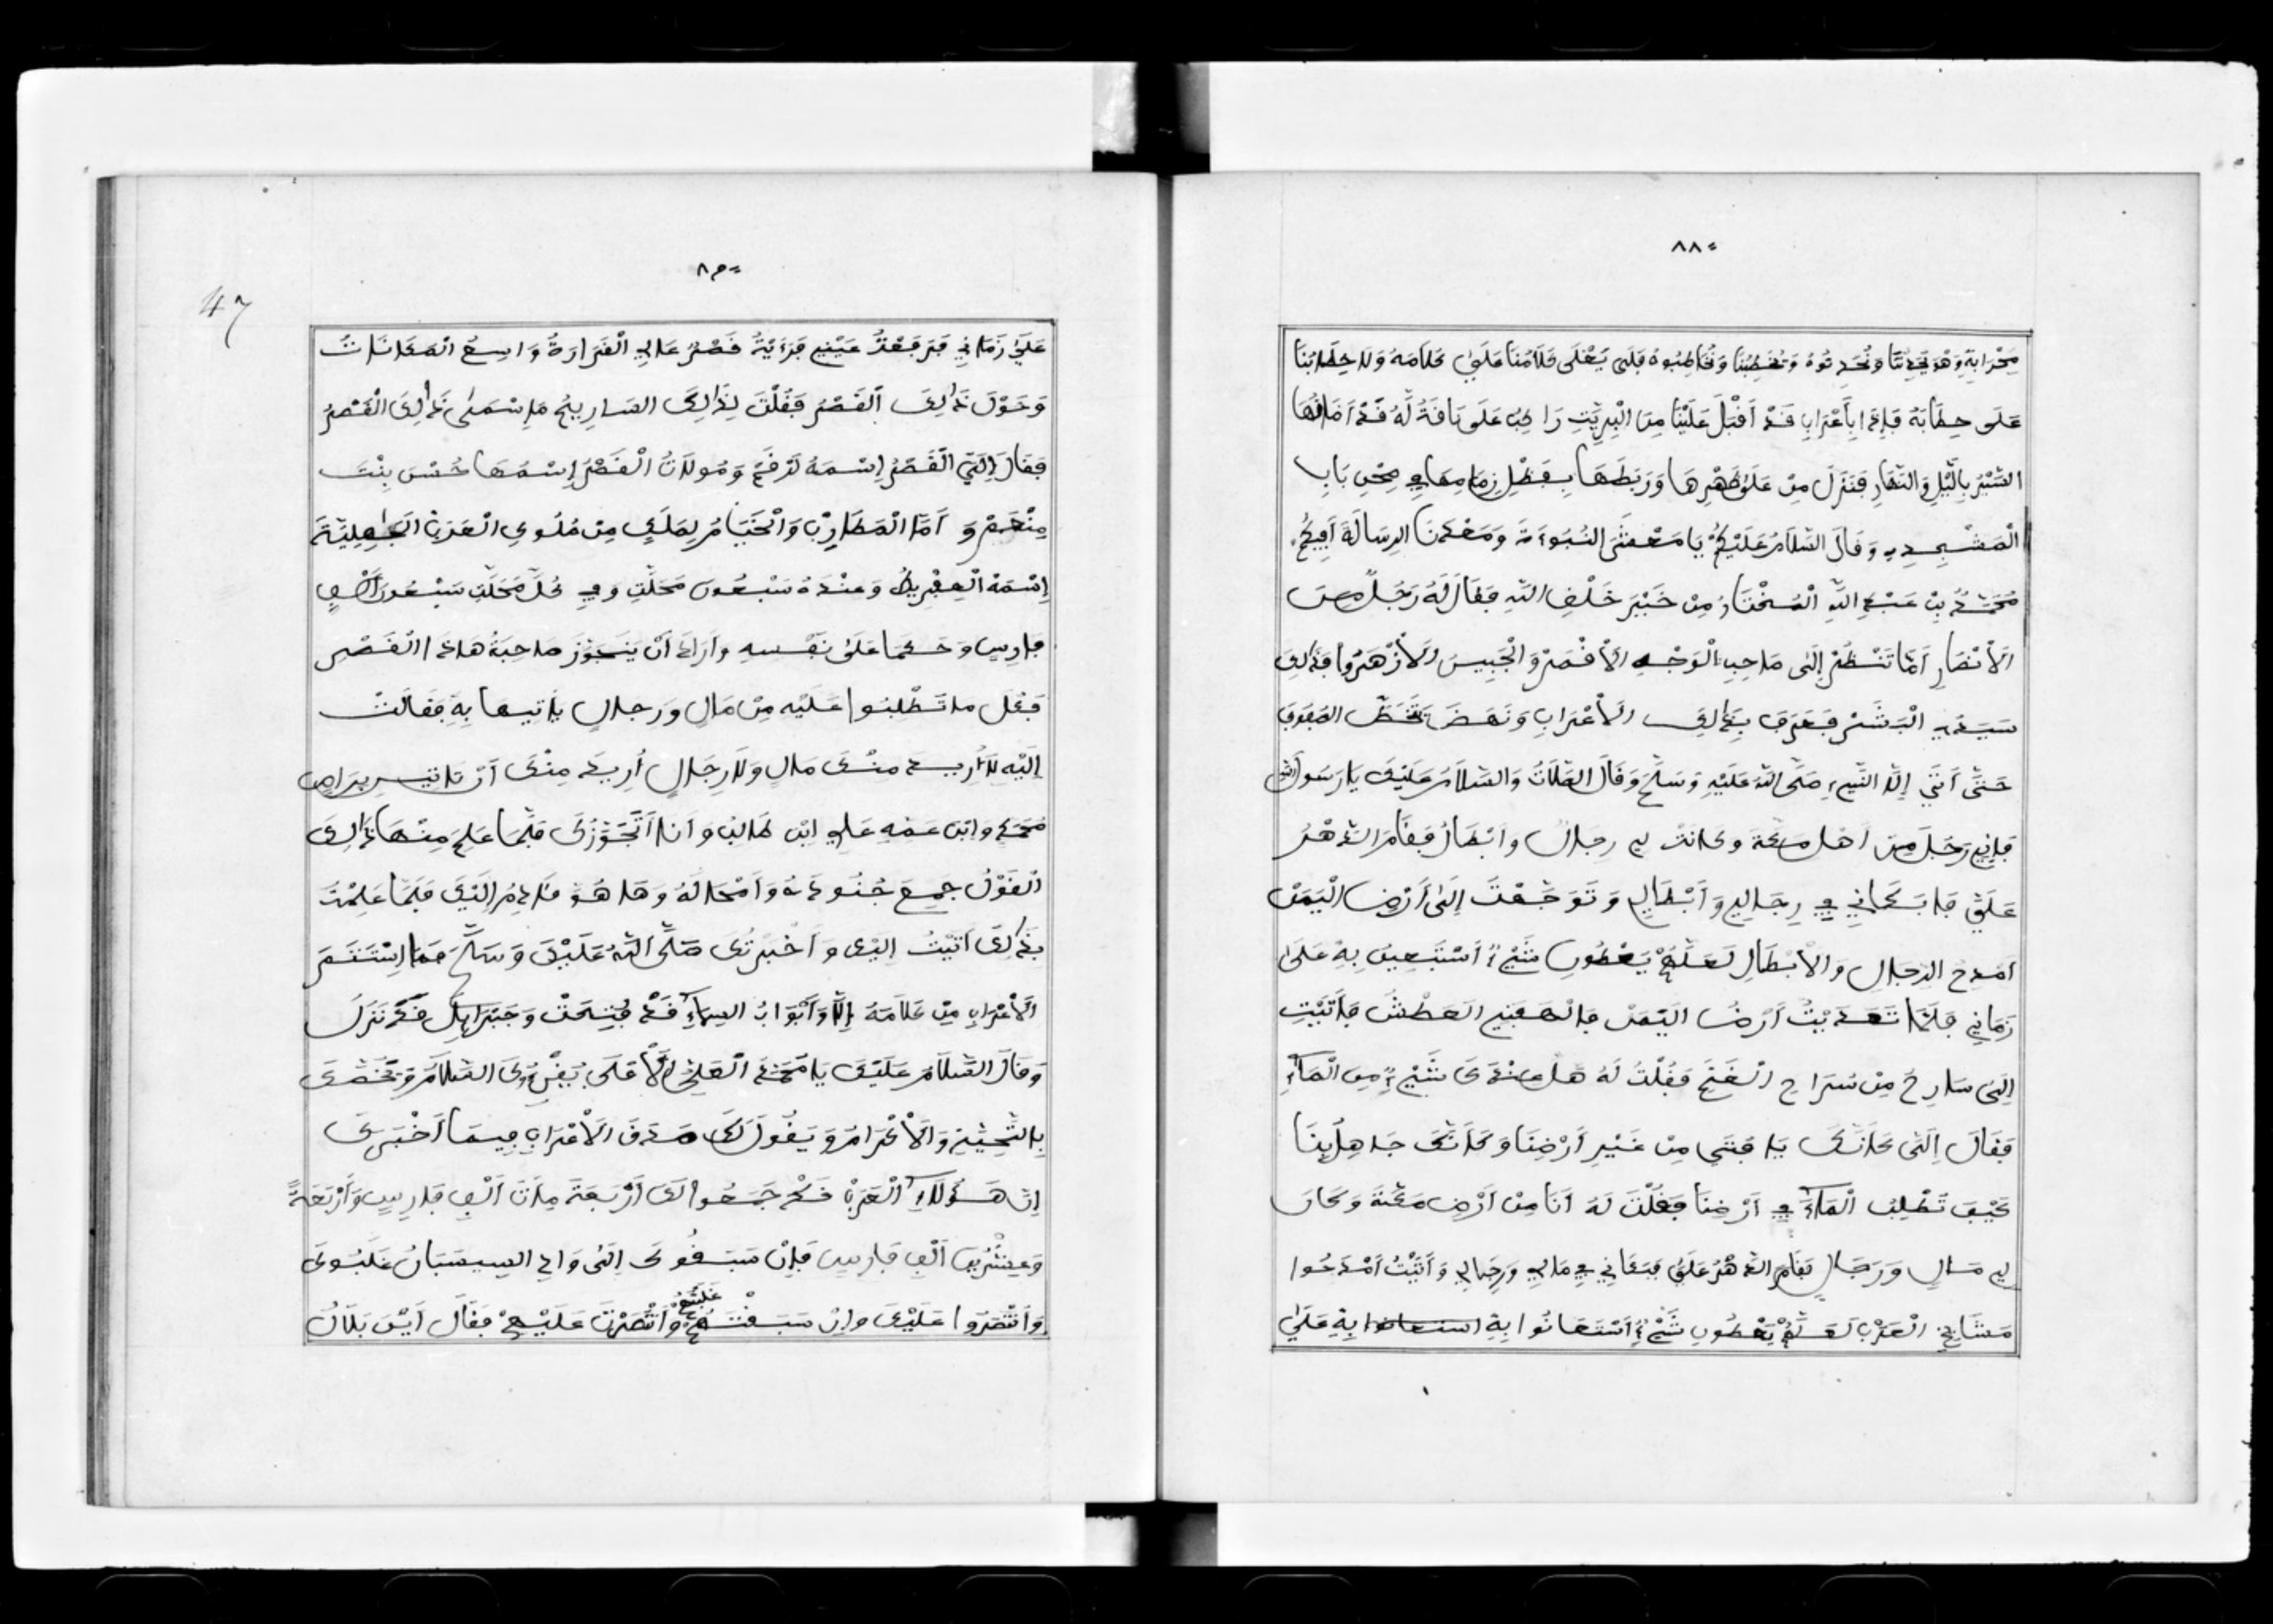 ٨٨٠
مِحْرَابِهِ وَهْوَ يُحَدِّثُنَا وَنُحَدِثُوهُ وَيُخَطِبُنَا وَنُخَاطِبُوهُ فَلَمْ يَعْلَى كَلَامُنَا عَلَى كَلَامَهُ وَلَا خِطَابُنَا
عَلَى خِطَابَهُ فَإِذَا بِأَعْرَابِ قَدْ أَقْبَلَ عَلَيْنَا مِنَ الْبِرِيَّتِ رَاكِبُ عَلَى نَاقَةُ لَهُ قَدْ أَضَافُهَا
السَّيْرُ بِالَّيْلِ وَالنَّهَارِ فَنَزَلَ مِنْ عَلَى ظَهْرِهَا وَرَبَطَهَا بِفَظْلِ زِمَامِهَا فِي صِحْنِ بَابِ
الْمَسْجِدِ وَقَالَ السَّلَامُ عَلَيْكُمْ يَا مَعْشَرَ النُبُوءَةَ وَمَعْدَنَ الرِسَالَةَ أَفِيكُمْ
مُحَمَّدُ بِنْ عَبْدِ اللَّهِ الْمُخْتَارُ مِنْ خَيْرَ خَلْفِ اللَّهِ فَقَالَ لَهُ رَجُلً مِنَ
الَأنْصَارِ أَمَّا تَنْظُرْ إِلَى صَاحِبِ الْوَجْهِ الَأقْمَرْ وَالْجَبِيسَ الَأزْهَرُوا فَذَالِكَ
سَيِّدِ الْبَشَرْ فَعَرَفَ بِذَالِكَ الَأعْرَابِ وَنَهَضَ يَتَخَطَّ الصُفُوفَ
حَتَّى أَتَى إِلَا النَّبِيءِ صَلَّى اللَّهُ عَلَيْهِ وَسَلَّمَ وَقَالَ الصَّلَاتُ وَالسَّلَامُ عَلَيْكَ يَا رَسُولَ اللَّه
فَإِنِي رَجُلَ مِنَ أَهْلِ مَكَّةَ وَكَانَتْ لِي رِجَالُ وَأَبْطَالُ فَقَامَ الدَّهْرُ
عَلَيَّ فَابَكَانِي فِي رِجَالِي وَأَبْطَالِي وَتَوَجَّهْتَ إِلَى أَرْضِ الْيَمَنْ
أَمْدِحُ الرِجَالِ وَالَأبْطَالِ لَعَلَّهُمْ يَعْطُونِ شَيْءٌ أَسْتَعِينُ بِهِ عَلَى
زَمَانِي فَلَمَّا تَعَدَيْتُ أَرْضُ الْيَمَنْ فَالْهَفَنِي الْعَطْشُ فَأَتَيْتِ
إِلَى سَارِحُ مِنْ سُرَاحِ الْغَنَمِ فَقُلْتُ لَهُ هَلْ عِنْدَكَ شَيْءٌ مِنَ الْمَاءِ
فَقَالَ إِلَيَّ كَأَنَّكَ يَا فَتَى مِنْ غَيْرِ أَرْضِنَا وَكَأَنَّكَ جَاهِلُ بِنَا
كَيْفَ تَطْلِبُ الْمَاءَ فِي أَرْضِنَا فَقُلْتَ لَهُ أَنَا مِنْ أَرْضِ مَكَّةَ وَكَانَ
لِي مَالِ وَرَجَالِ فَقَامَ الدَّهْرُ عَلَيَّ فَبَكَانِي فِي مَالِي وَرِجَالِي وَأَتَيْتُ أَمْدَحُوا
مَشَايِخِ الْعَرَبْ لَعَلَّهُمْ يَعْطُونِ شَيْءٌ أَسْتَعَانُوا بِهِ بِهِ عَلَى
47
عَلَى زَمَانِي فَرَفَعْتُ عَيْنِي فَرَءَيْتُ قَصْرُ عَالِي الْقَرَارَةُ وَاسِعُ الْمَكَانَاتُ
وَحَوْلَ ذَالِكَ الْقَصْرُ فَقُلْتَ لِذَالِكَ السَارِيحُ مَا اِسْمَى ذَالِكَ الْقَصْرُ
فَقَالَ إِلَيَّ الْقَصْرُ إِسْمَهُ وَمُولَاتُ الْقَصْرُ إِسْمُهَا حُسْنَ بِنْتَ
وَأَمَّا الْمَظَارِبْ وَالْخَيَامُ لِمَلَكٍ مِنْ مُلُوكِ الْعَرَبْ الْجَاهِلِيَّةَ
إِسْمَهُ الْعِفْرِيطُ وَعِنْدَهُ سَبْعُونَ مَحَلَّتِ وَفِي كُلَّ مَحَلَّتِ سَبْعُونَ أَلْفِ
فَارِسِ وَحَكَمَا عَلَى نَفْسِهِ وَأَرَادَ أَنْ يَتَجَوَّزَ صَاحِبَةُ هَاذَا الْقَصْرِ
فَقَالَ مَا تَطْلِبُوا عَلَيْهِ مِنْ مَالِ وَرِجَالِ يَاتِيهَا بِهِ فَقَالَتْ
إِلَيْهِ لَا أُرِيدُ مِنْكَ مَالِ وَلَا رِجَالِ أُرِيدُ مِنْكَ أَنْ تَاتِينِي بِرَاصِ
مُحَمَّدِ وَابْنَ عَمِهِ عَلِي ابْنِ طَالِبْ وَأَنَا أَتَجَوَّزُكَ فَلَمَّا عَلِمَ مِنْهَا ذَالِكَ
الْقَوْلُ جَمِيعَ جُنُودَهُ وَأَصْحَالَهُ وَهَا هُوَ قَادِمُ إِلَيْكَ فَلَمَّا عَلِمْتُ
بِذَالِكَ أَتَيْتُ إِلَيْكَ وَأَخْبَرْتُكَ صَلَّى اللَّهُ عَلَيْكَ وَسَلَّمَ فَمَا اِسْتَتَمَّ
الَأعْرَابِ مِنْ كَلَامَهُ إِلَّا وَأَبْوَابُ السَمَاءِ قَدْ فُتِحَتْ وَجَبْرَائِلَ قَدْ نَزَلَ
وَقَالَ السَّلَامُ عَلَيْكَ يَا مُحَمَّدَ الْعَلِيُّ الَأعْلَى يُقْرِءُكَ السَّلَامُ وَيَخُصُّكَ
بِالتَّحِيَّةِ وَالَأكْرَامُ وَيَقُولُ لَكَ صَدَقَ الَأعْرَابِ فِيمَا أَخْبَرَكَ
إِنَّ هَؤُلَاءِ الْعَرَبْ قَدْ جَمَعُوا لَكَ أَرْبَعَةَ مِأَتَ أَلْفِ فَارِسِ وَأَرْبَعَةً
وَعِشْرُينَ أَلْفِ فَارِسِ فَإِنْ سَبَقُوكَ إِلَى وَادِ السِيسَبَانُ غَلَبُوكَ
وَأَنْتَصَرُوا عَلَيْكَ وَإِنْ سَبَقْتَهُمْ غَلَبْتَهُمْ وَأَنْتَصَرْتَ عَلَيْهِمْ فَقَالَ أَيْنَ بَلَالُ